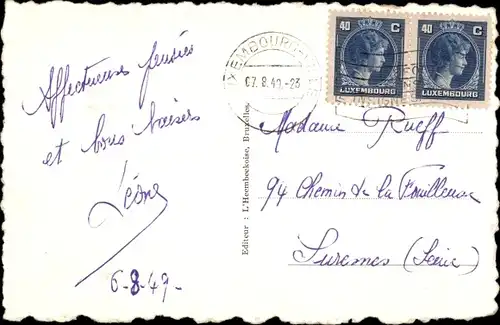 Affectueuses pensées
et bons baisers
Léone
6-8-49-
Editeur : L'Heembeekoise, Bruxelles.
LUXEMBOURG-
07.8.49-23
40 C
LUXEMBOURG
40 C
LUXEMBOURG
Madame Rueff
94 Chemin de la Fouilleuse
Suresnes (Seine)